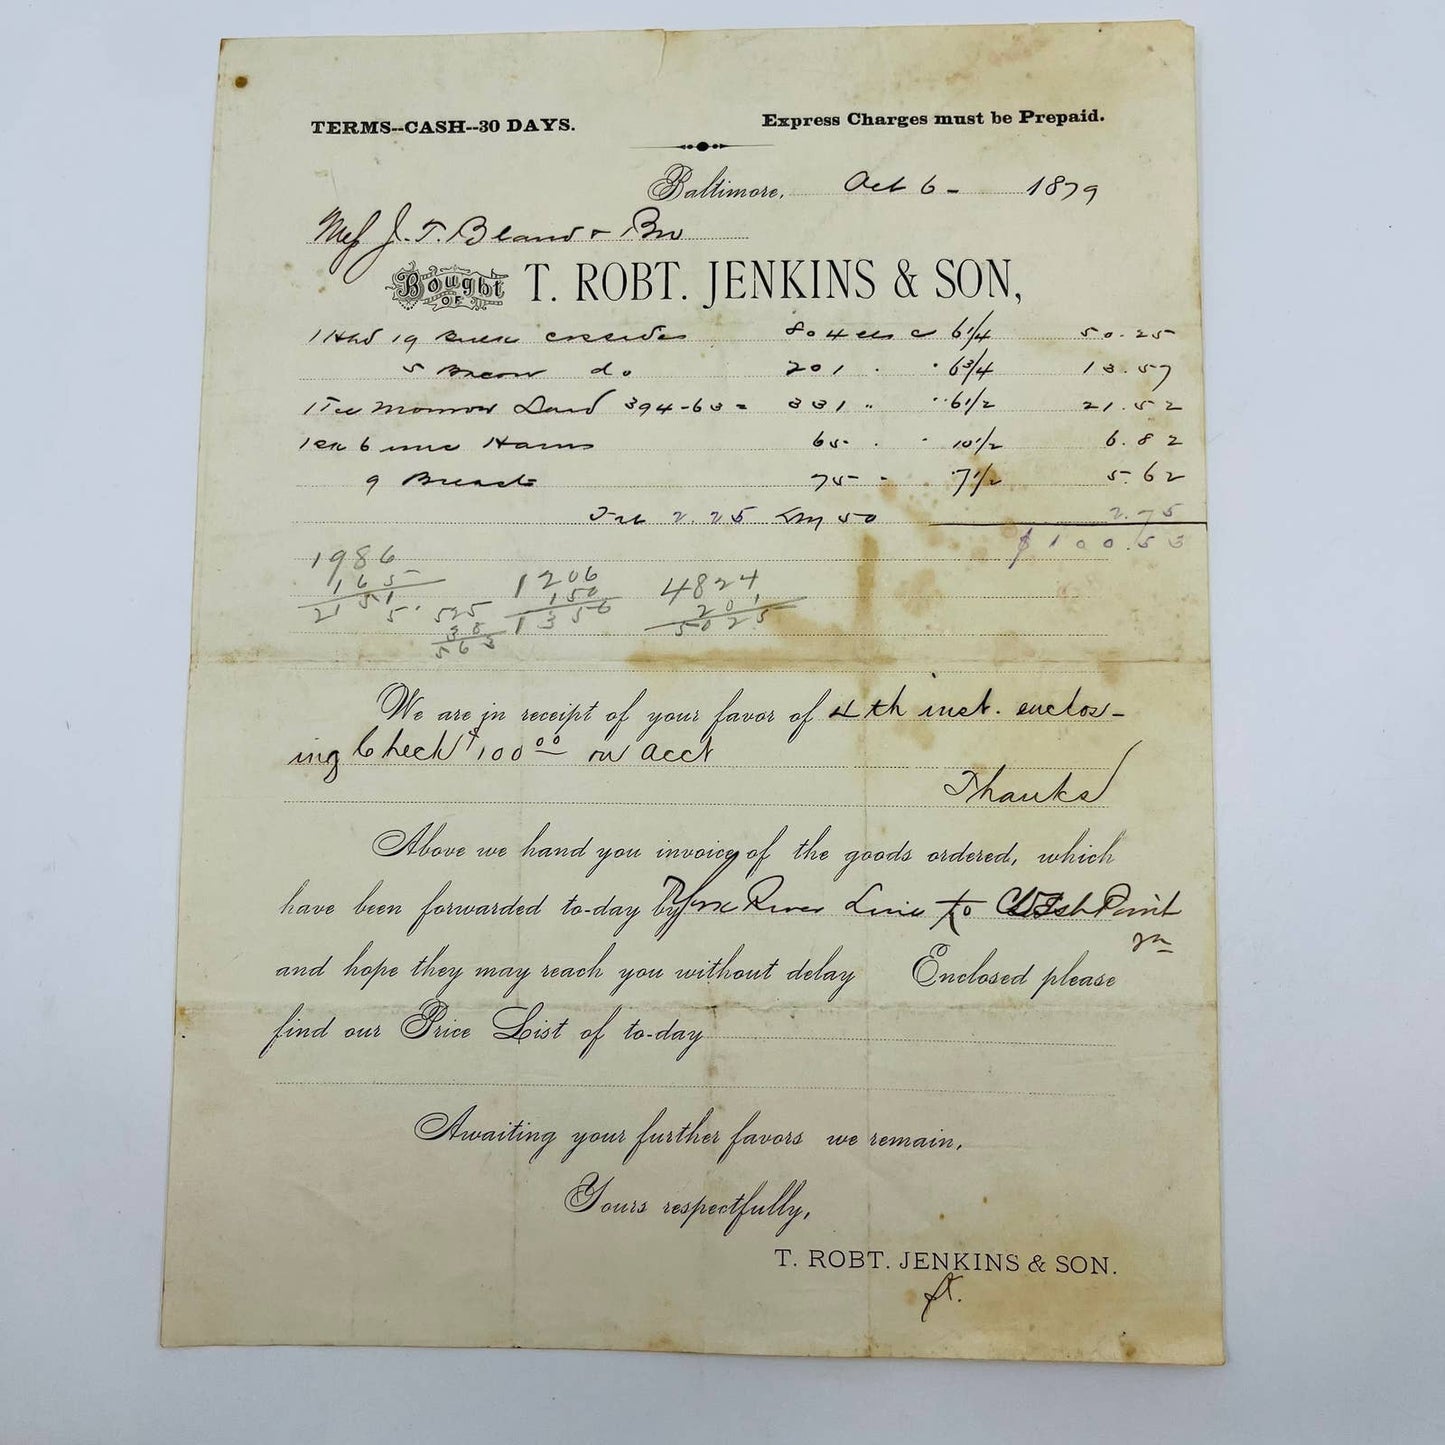 TERMS--CASH--30 DAYS.
Express Charges must be Prepaid.
Baltimore, Oct 6 - 1879
J. T. Bland & Bro
Bought OF T. ROBT. JENKINS & SON,
1 Hhd 19 Bulk 804 6 1/4 50.25
5 Bacon do 201 " 6 3/4 13.57
1 Tce Lard 394-63 = 331 " " 6 1/2 21.52
6 Hams 65 " " 10 1/2 6.82
9 Breast 75 " 7 1/2 5.62
2.25 50 2.75
$100.53
1986
165
2151
5.
525
38
563
1206
150
1356
4824
201
5025
We are in receipt of your favor of 4th inst. enclos-
ing Check $100 00 on acct
Thanks
Above we hand you invoice of the goods ordered, which
have been forwarded to-day by York River Line to Point
Va
and hope they may reach you without delay Enclosed please
find our Price List of to-day
Awaiting your further favors we remain,
Yours respectfully,
T. ROBT. JENKINS & SON.